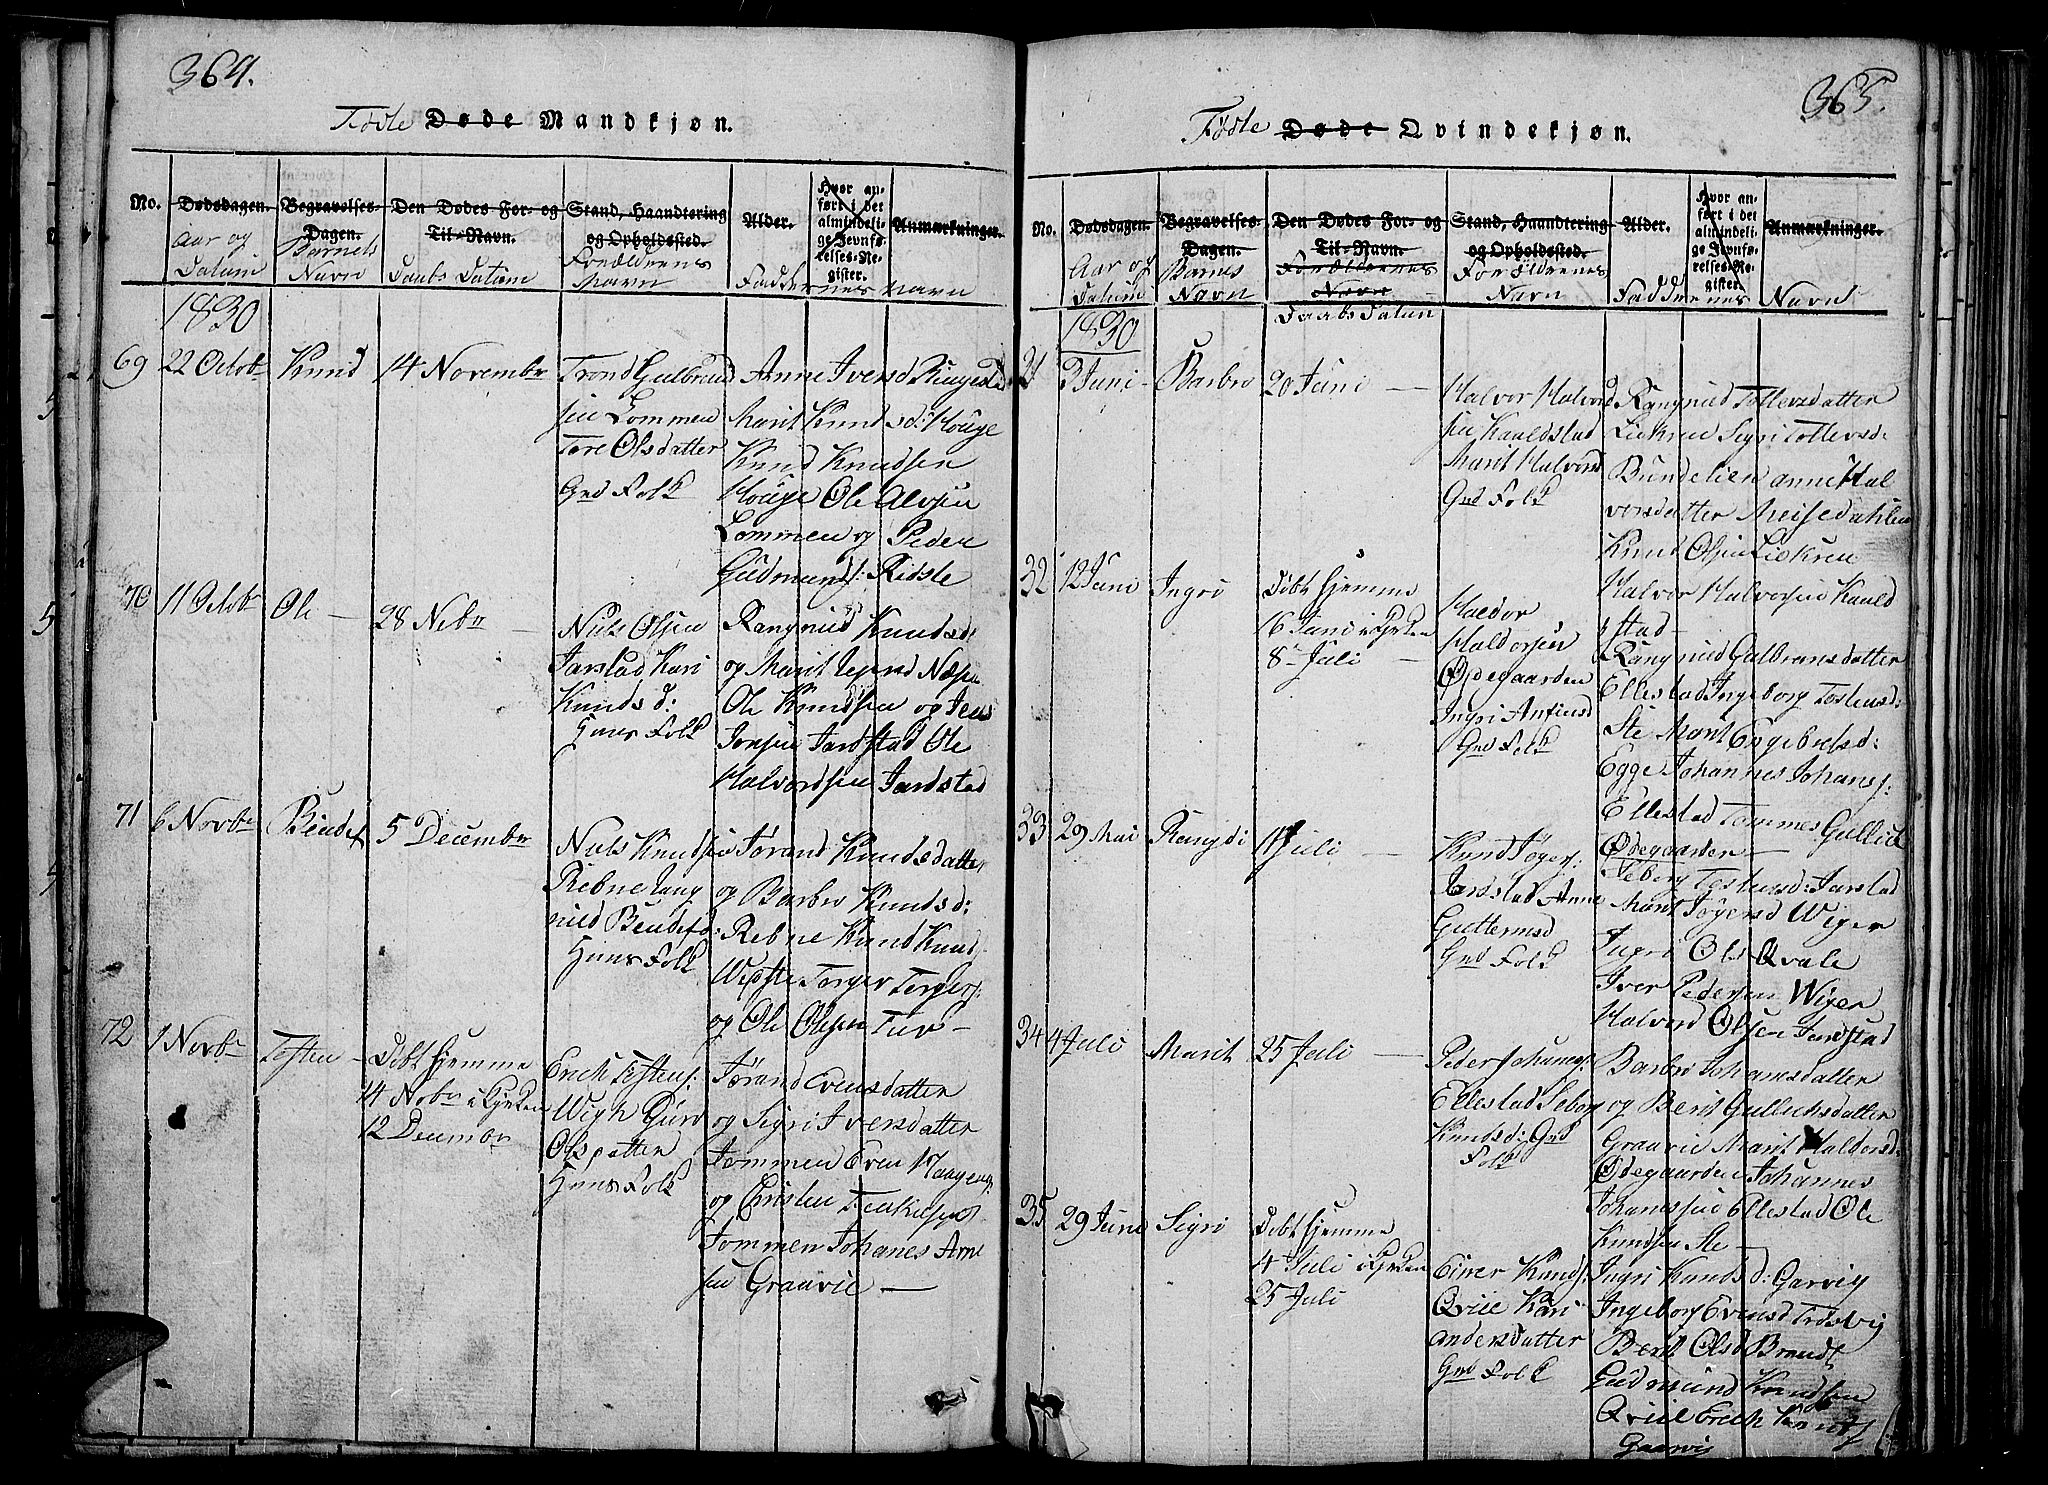 364.
Fødte Døde Mandkjøn.
No.
Dødsdagen.
Aar og
Datum
Begravelses-
Dagen.
Barnets
Navn
Den Dødes For- og
Til-Navn.
Daabs Datum
Stand, Haandtering
og Opholdssted.
Forældrenes
Navn
Alder.
Hvor an-
ført i det
almindeli-
ge Jevnfø-
relses-Re-
gister.
Anmærkninger.
Faddernes Navn
1830
69
22 Octob
Knud
14 Novembr
Trond Gulbrand
sen Lommen
Tore Olsdatter
Grd Folk
Anne Iversd Ringest
Marit Knudsd: Houge
Knud Knudsen
Houge Ole Alvsen
Lommen og Peder
Gudmunds: Ridste
70
11 Octob
Ole
28 Nobr
Niels Olsen
Jarstad Kari
Knudsd:
Huus Folk
Rangnild Knudsd:
og Marit
Ole Knudsen og Jens
Jonsen Jardstad Ole
Halvordsen Jardstad
71
6 Novbr
Bendet
5 Decembr
Niels Knudsen
Rebne Rang
nild Bendetsd:
Huus Folk
Jørand Knudsdatter
og Barbro Knudsd:
Rebne Knud Knuds:
Torger Torgers:
og Ole Olsen Tuv
72
1 Novbr
Tosten
Døbt hjemme
14 Nobr i Kirken
12 Decembr
Erich Tostens:
Wigh Guro
Olsdatter
Huus Folk
Jørand Evensdatter
og Sigri Iversdatter
Tommen Even Haagens:
og Cristen
Tommen Johanes Arne
sen Graavie
365.
Fødte Døde Qvindekjøn.
No.
Dødsdagen.
Aar og
Datum
Begravelses-
Dagen.
Barnes
Navn
Den Dødes For- og
Til-Navn.
Forældrenes
Navn
Daabs Datum
Stand, Haandtering
og Opholdssted.
Forældrenes
Navn
Alder.
Hvor an-
ført i det
almindeli-
ge Jevnfø-
relses-Re-
gister.
Anmærkninger.
Faddernes Navn
1830
31
3 Juni
Barbro
20 Juni
Halvor Halvord
sen Kauldstad
Marit Halvorsd
Grd Folk
Rangnild Tollevsdatter
Liekren Sigri Tollevsd:
Bundelien anne Hal
versdatter Meisedahlen
Knud Olsen Liekren
Halvor Halvorsen Kauld
stad
32
12 Juni
Ingri
Døbt hjemme
16 Juni i Kirken
8 Juli
Haldor
Haldorsen
Ødegaarden
Ingri Anfinsd
Grd Folk
Rangnild Gulbransdatter
Ellestad Ingeborg Tostensd:
Ste Marit Engebretsd:
Egge Johannes Johans:
Ellestad Tommes Gullick
Ødegaarden
33
29 Mai
Rangdi
11 Juli
Knud Jøgers:
Jardstad Anne
Guttormsd
Grd Folk
Seborg Tostensd: Jarstad
Marit Jøgersd Wiger
Ingri Ols Qvale
Iver Pedersen Wiger
Halvord Olsen Jardstad
34
4 Juli
Marit
25 Juli
Peder Johanes:
Ellestad Sebor
Knudsd: Grd
Folk
Barbro Johansdatter
og Berit Gullichsdatter
Graavie Marit Haldorsd:
Ødegaarden Johannes
Johansen Ellestad Ole
Knudsen Ste
35
29 Juni
Sigri
Døbt hjemme
4 Juli i Kirken
25 Juli
Einer Knuds:
Qviie Kari
Andersdatter
Grd Folk
Ingri Knudsd: Garvig
Ingeborg Evensd Trøsvig
Berit Olsd Brandt
Gudmund Knudsen
Qviie Erich Knuds
Gaarvig